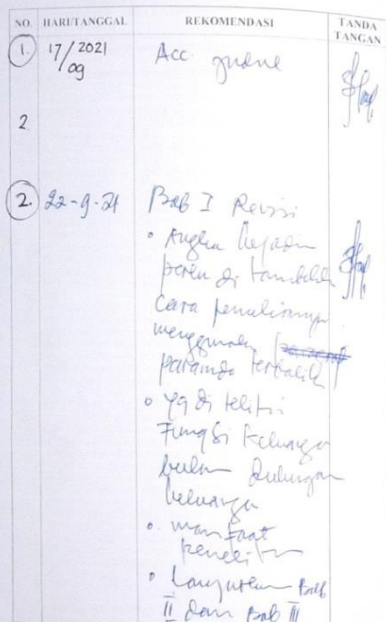 NO. HARI/TANGGAL REKOMENDASI TANDA TANGAN
1. 17/09 2021 Acc
2.
2. 22-9-21 Bab I Revisi
• Angka kejadian
perlu di tambah
cara penulisannya
menggunakan
piramida terbalik
• yg di teliti
Fungsi keluarga
bukan dukungan
keluarga
• manfaat
penelitian
• Lanjutkan Bab
II dan Bab III